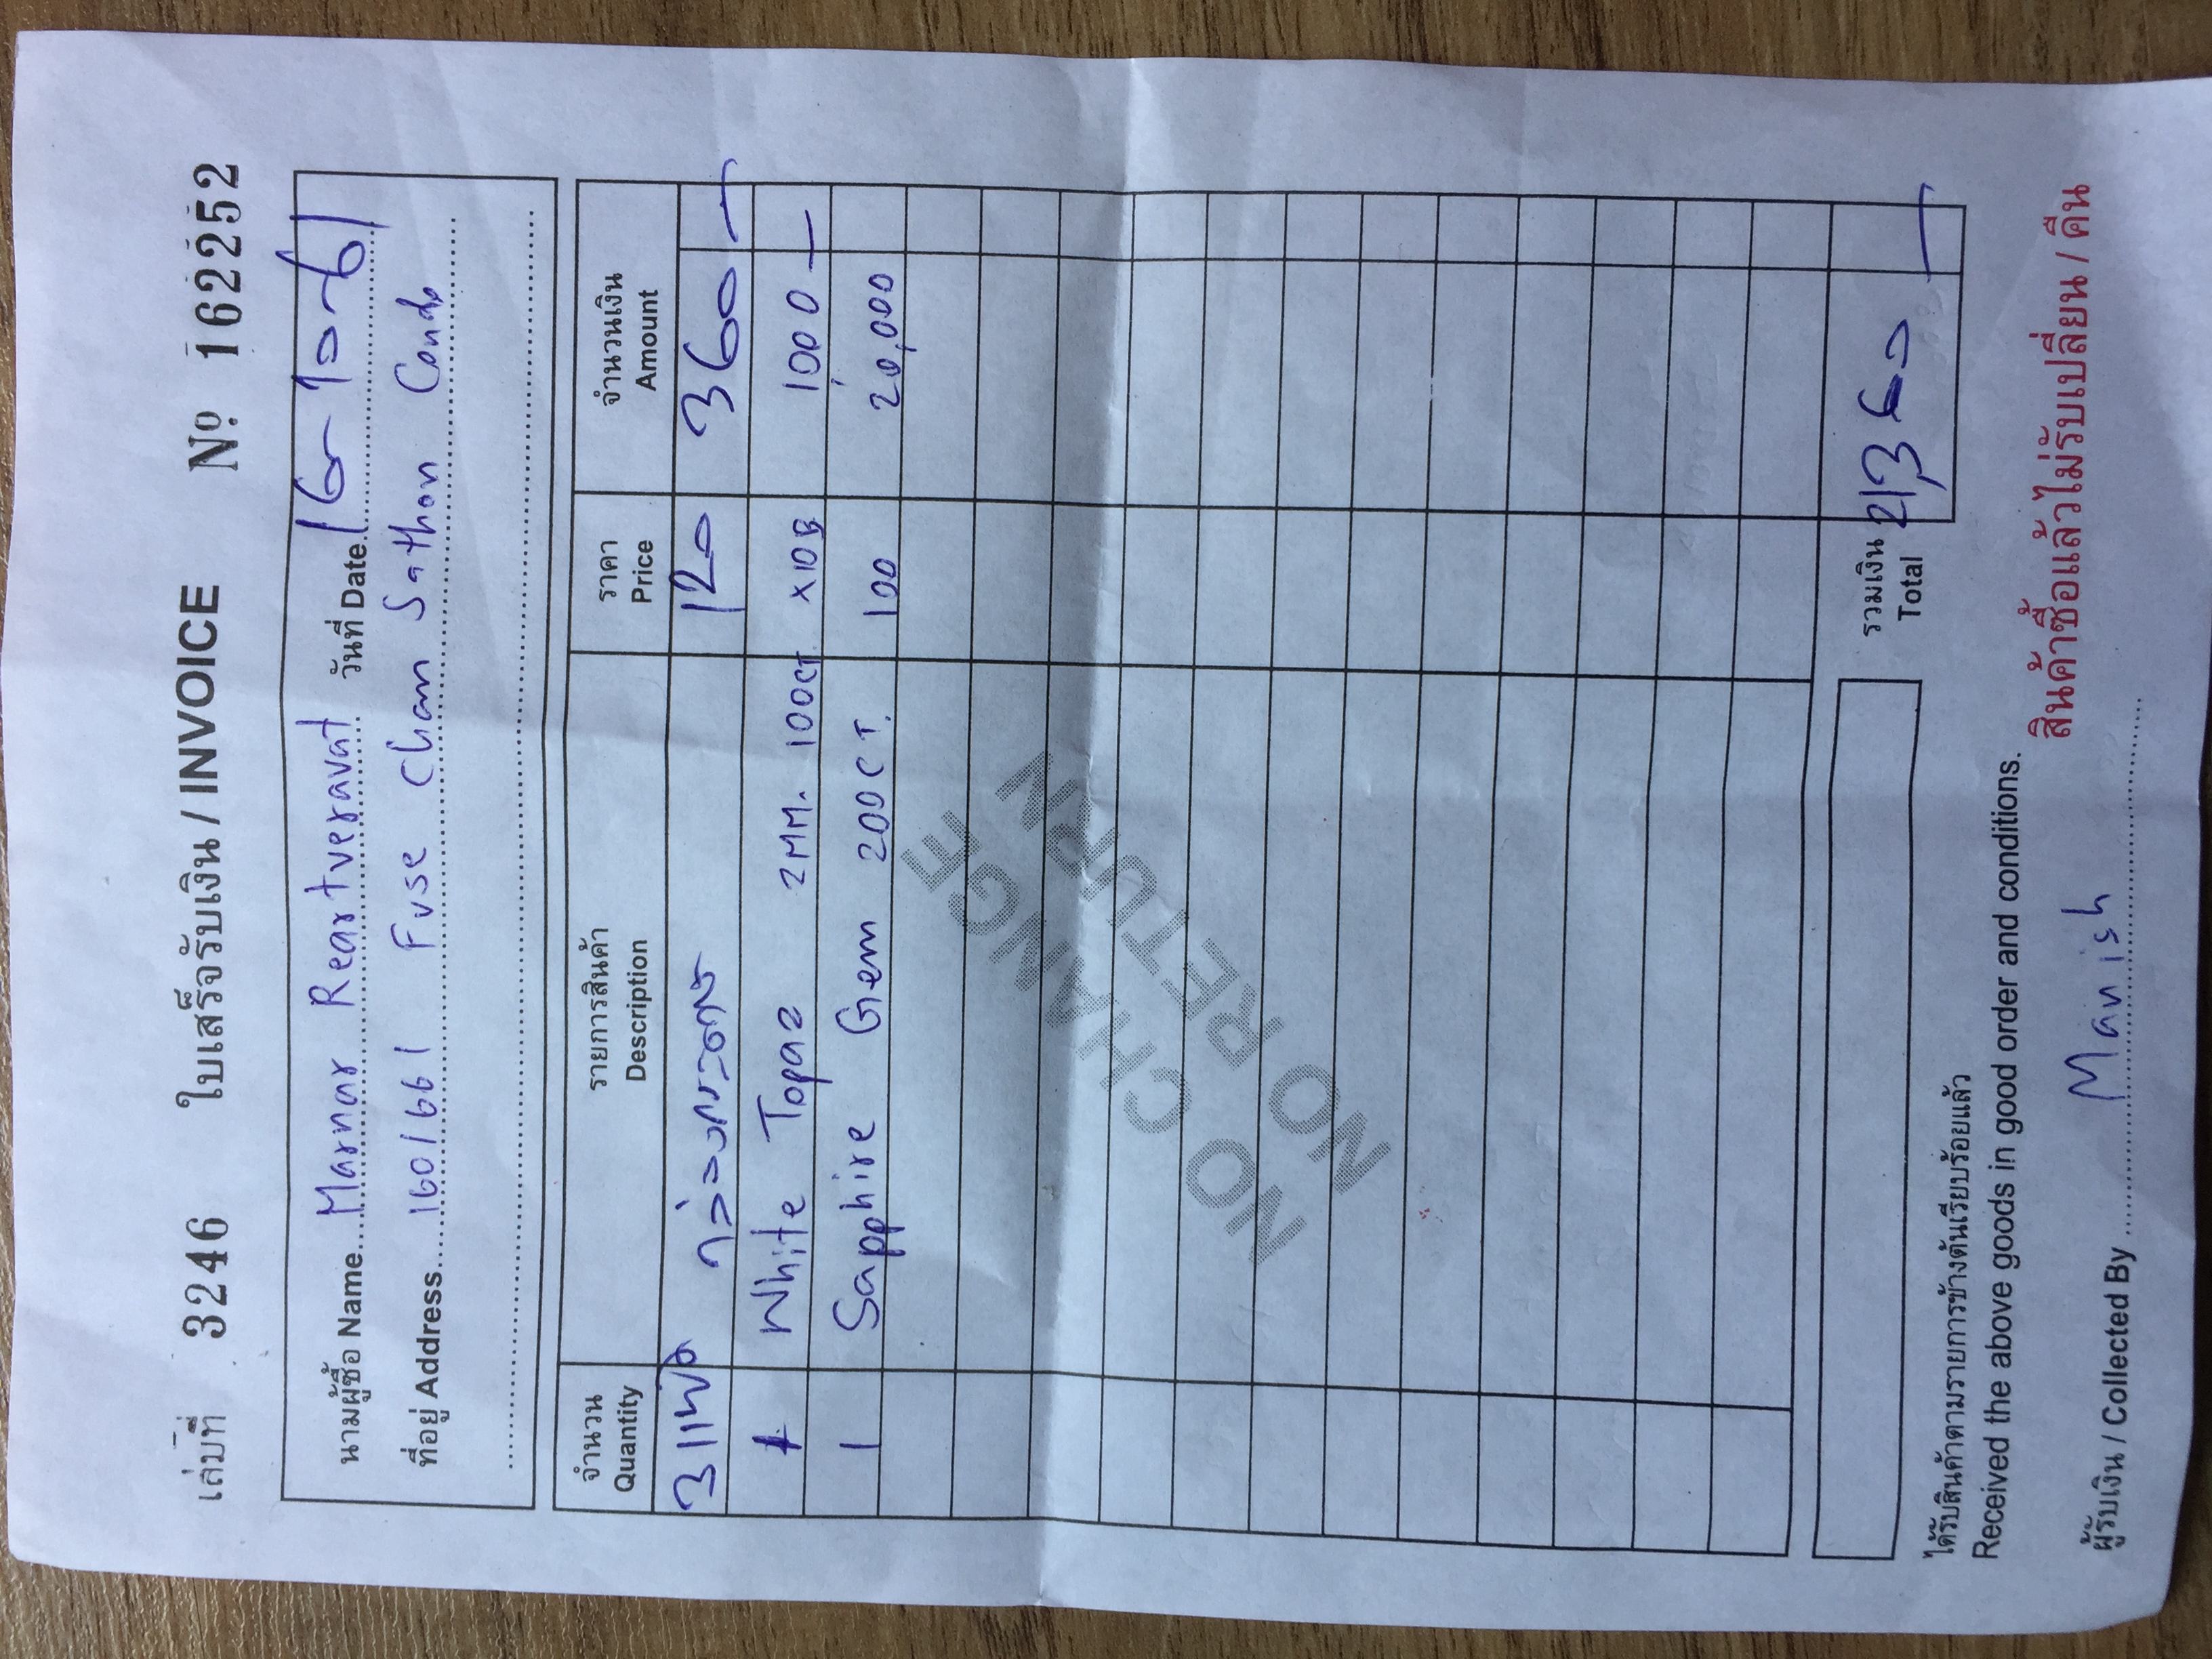 เล่มที่ 3246 ใบเสร็จรับเงิน / INVOICE Nº 162252
นามผู้ซื้อ Name Marnar Reartveravat วันที่ Date 16-10-61
ที่อยู่ Address 160/661 Fuse Chan Sathon Condo
จำนวน รายการสินค้า ราคา จำนวนเงิน
Quantity Description Price Amount
3 แพ็ค กล่องกระดาษ 120 360 -
1 White Topaz 2MM. 100CT x10B 1000 -
1 Sapphire Gem 200CT. 100 20,000
NO CHANGE
NO RETURN
รวมเงิน
Total 21360 -
ได้รับสินค้าตามรายการข้างต้นเรียบร้อยแล้ว
Received the above goods in good order and conditions.
สินค้าซื้อแล้วไม่รับเปลี่ยน / คืน
ผู้รับเงิน / Collected By Manish